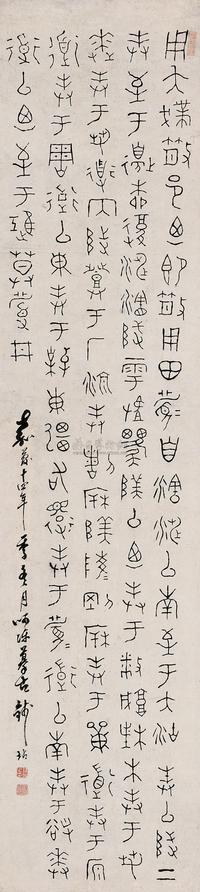 用夨撲散邑迺即散用田眉自瀗涉以南至于大沽封以陟二
封至于邊柳復涉瀗陟雩𨺬以西封于播城楮木封于芻
逨封于芻道內陟芻登于厂湶封諸𣏟陵剛𣏟封于單道封于原
道封于周道以東封于棹東疆右還封于眉道以南封于谷逨
道以西至于堆莫眉井
十四年季冬月呵凍摹古 錢坫